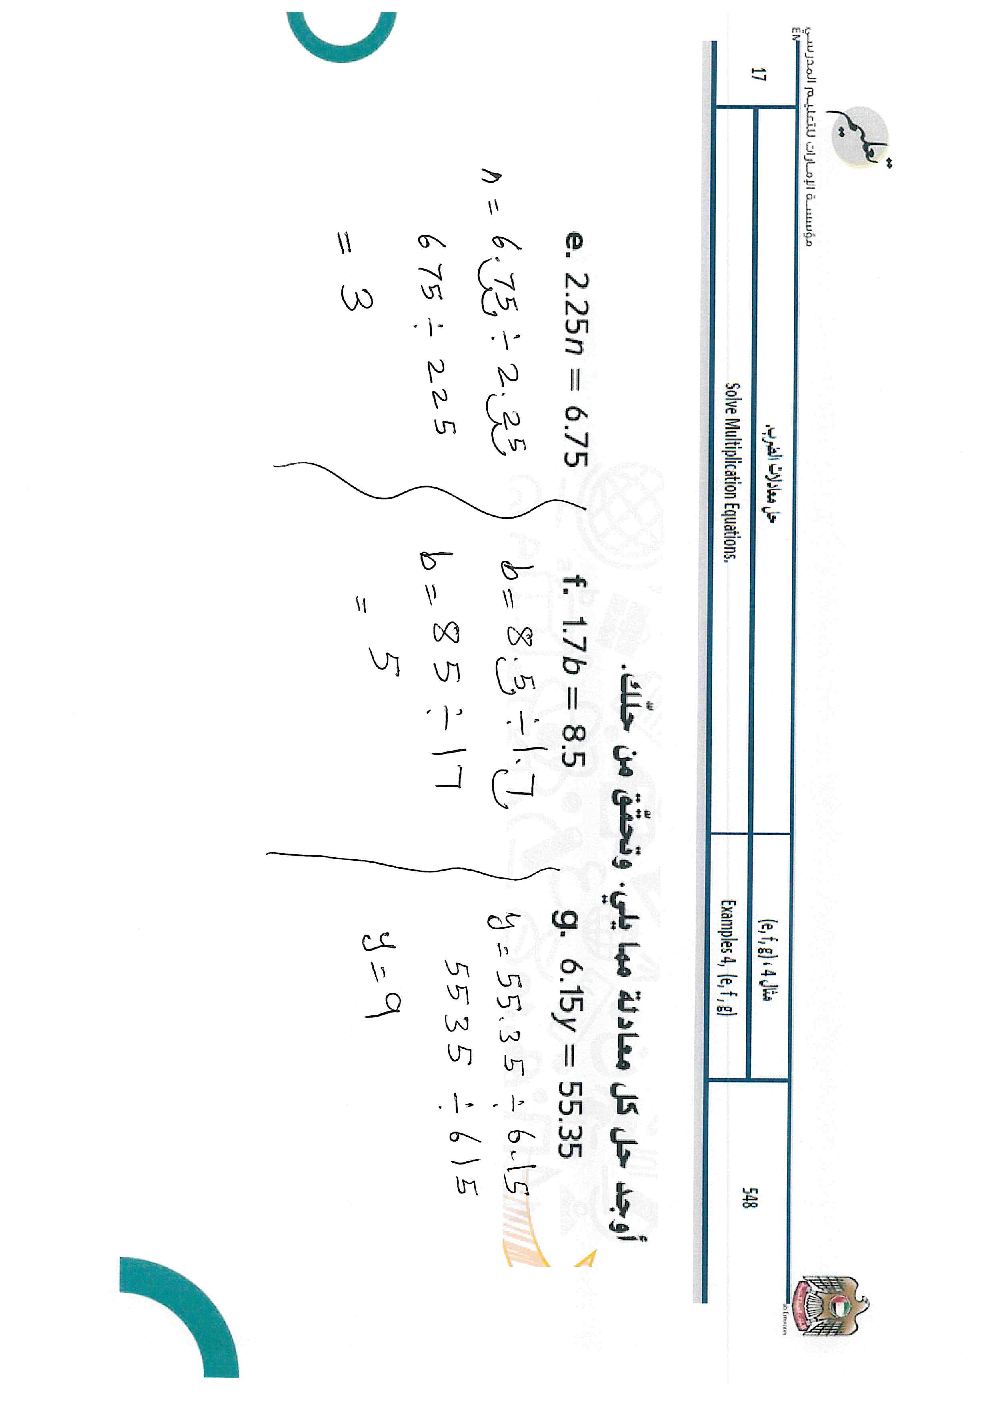 مؤسسة الإمارات للتعليم المدرسي
17
حل معادلات الضرب.
Solve Multiplication Equations.
مثال 4 ، (e, f, g)
Examples 4, (e, f, g)
548
أوجد حل كل معادلة مما يلي. وتحقّق من حلّك.
e. 2.25n = 6.75
n = 6.75 ÷ 2.25
675 ÷ 225
= 3
f. 1.7b = 8.5
b = 8.5 ÷ 1.7
b = 85 ÷ 17
= 5
g. 6.15y = 55.35
y = 55.35 ÷ 6.15
5535 ÷ 615
y = 9